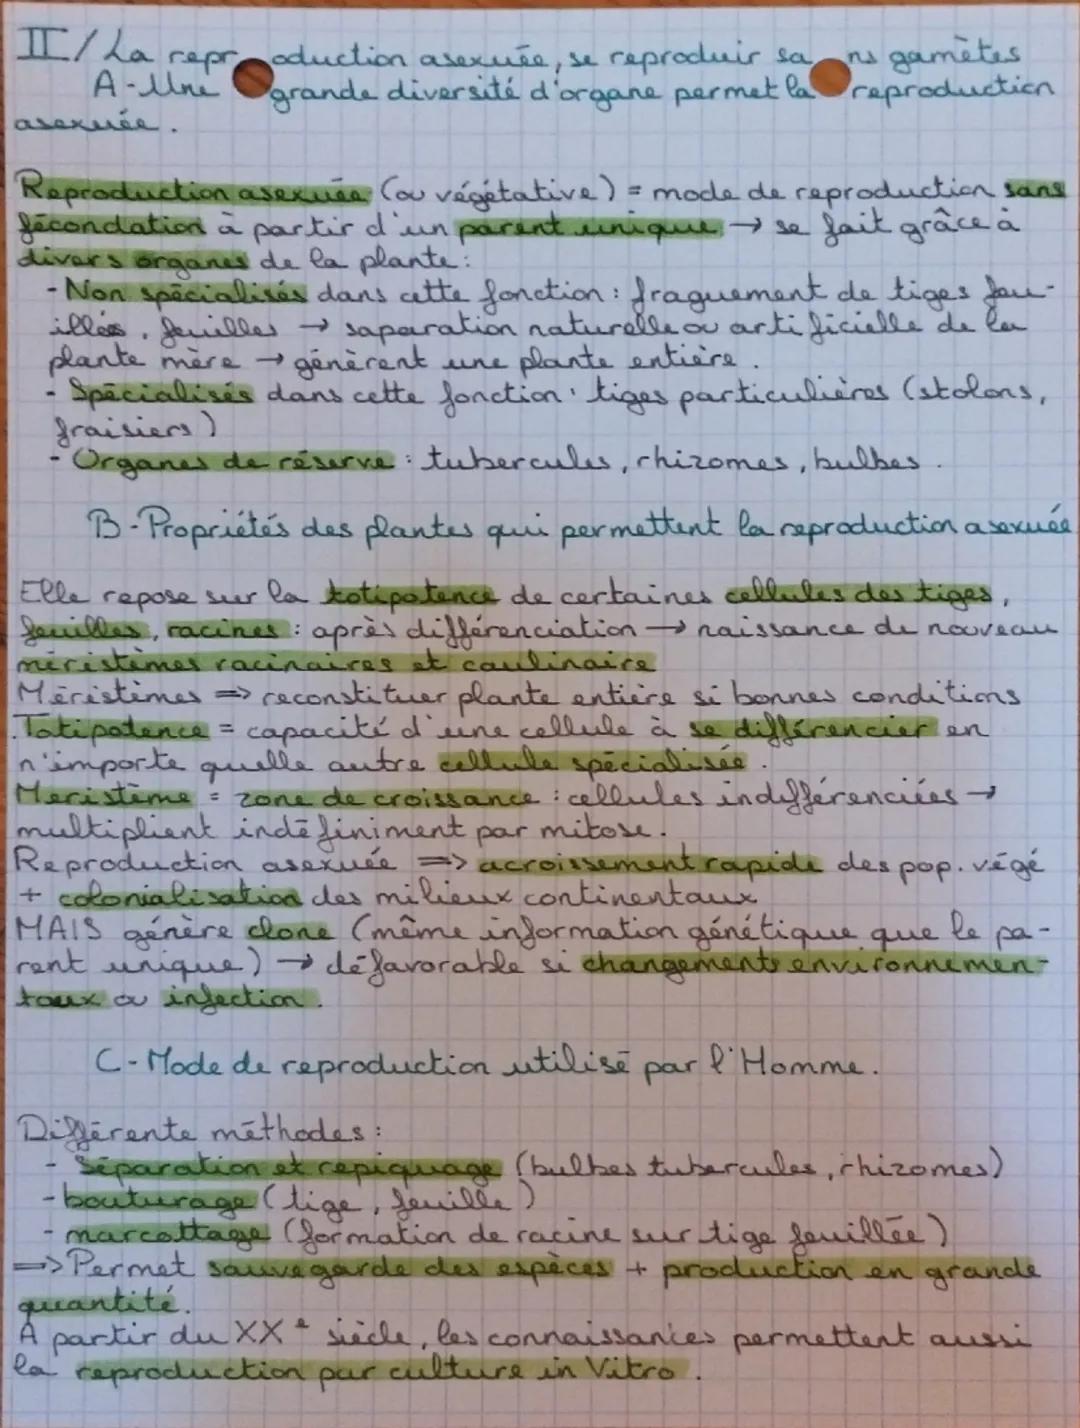 II/ La reproduction asexuée, se reproduir sans gamètes
A - Une grande diversité d'organe permet la reproduction
asexuée.
Reproduction asexuée (ou végétative) = mode de reproduction sans
fécondation à partir d'un parent unique → se fait grâce à
divers organes de la plante :
- Non spécialisés dans cette fonction : fraguement de tiges feu-
illées, feuilles → saparation naturelle ou artificielle de la
plante mère → génèrent une plante entière.
- Spécialisés dans cette fonction : tiges particulières (stolons,
fraisiers)
- Organes de réserve : tubercules, rhizomes, bulbes.
B - Propriétés des plantes qui permettent la reproduction asexuée
Elle repose sur la totipotence de certaines cellules des tiges,
feuilles, racines : après différenciation → naissance de nouveau
méristèmes racinaires et caulinaire
Méristèmes => reconstituer plante entière si bonnes conditions
.Totipotence = capacité d'une cellule à se différencier en
n'importe quelle autre cellule spécialisée.
Meristème = zone de croissance : cellules indifférenciées →
multiplient indéfiniment par mitose.
Reproduction asexuée => acroissement rapide des pop. végé
+ colonialisation des milieux continentaux
MAIS génère clone (même information génétique que le pa-
rent unique) → défavorable si changements environnemen-
taux ou infection.
C - Mode de reproduction utilisé par l'Homme.
Différente méthodes :
- Séparation et repiquage (bulbes tubercules, rhizomes)
- bouturage (tige, feuille)
- marcottage (formation de racine sur tige feuillée)
=> Permet sauvegarde des espèces + production en grande
quantité.
À partir du XXe siècle, les connaissances permettent aussi
la reproduction par culture in Vitro.